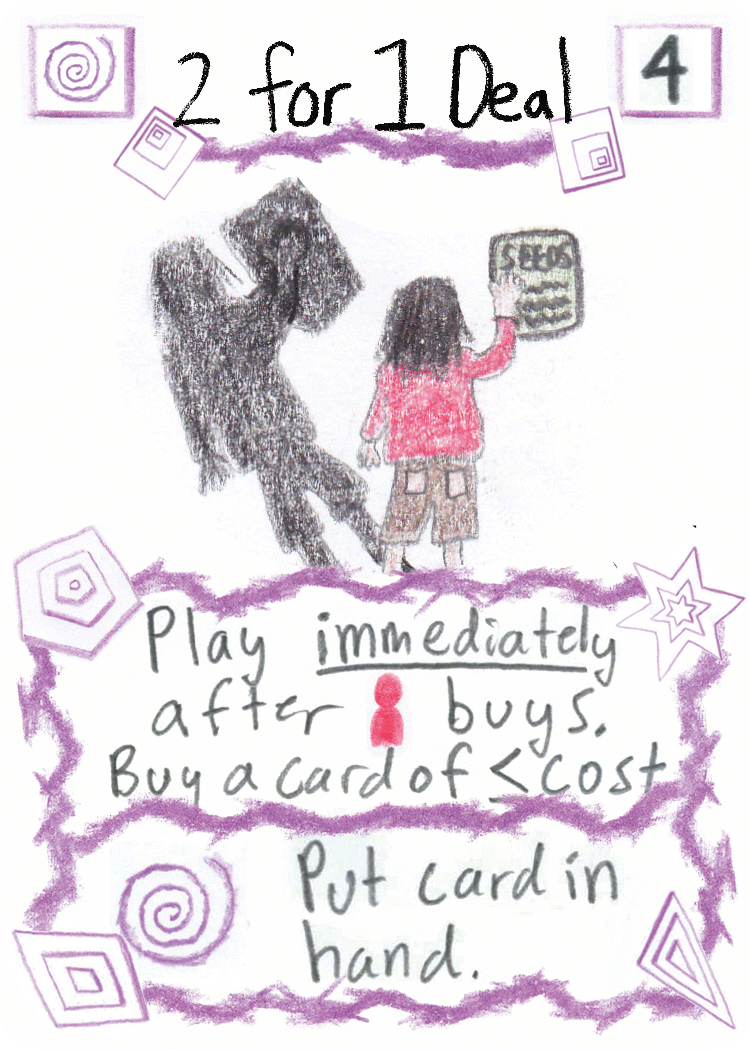 2 for 1 Deal
4
SEEDS
Play immediately
after buys.
Buy a card of ≤ cost
Put card in
hand.